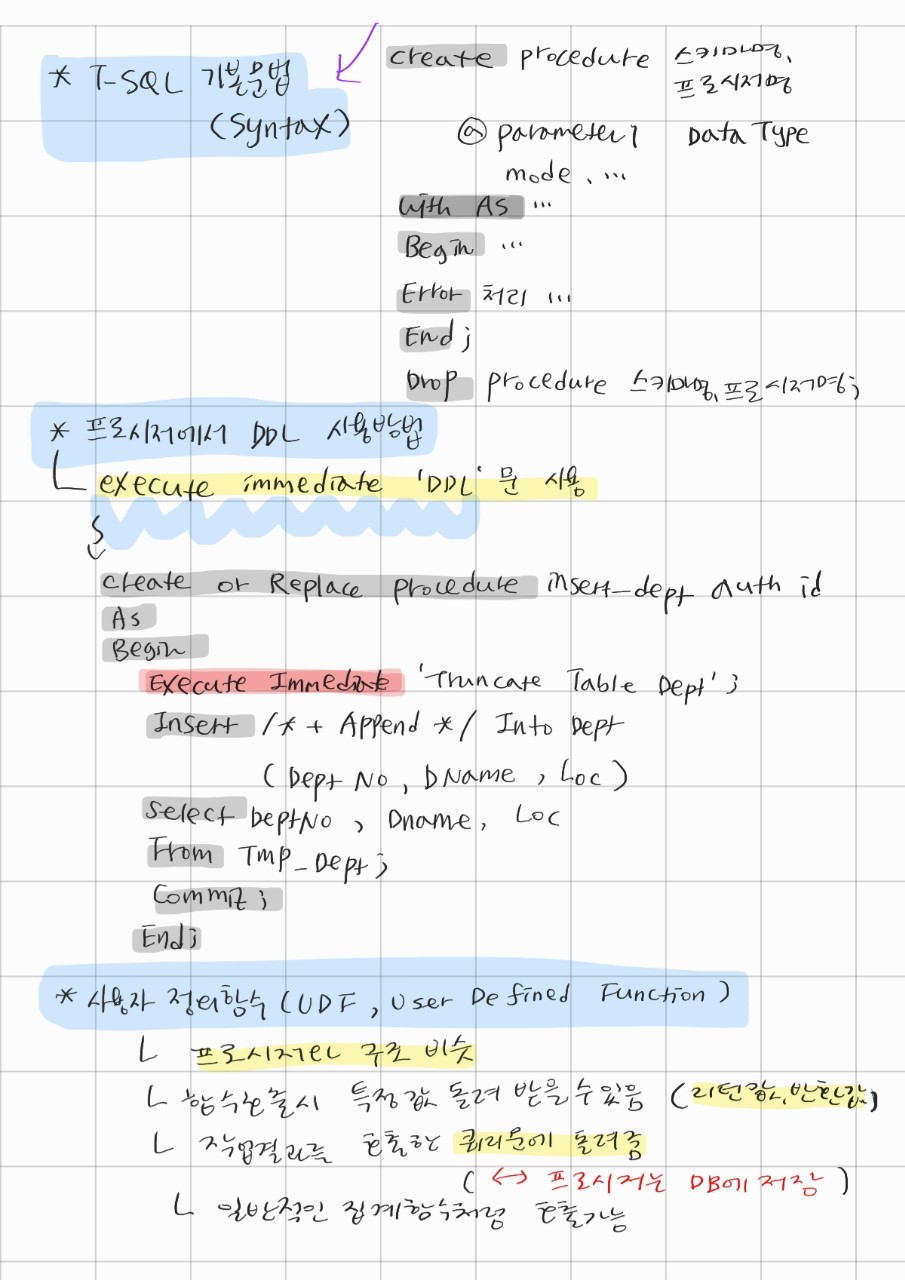 * T-SQL 기본문법
(Syntax)
Create procedure 스키마명,
프로시저명
@ parameter1 Data Type
mode, ...
With As ...
Begin ...
Error 처리 ...
End;
Drop procedure 스키마명,프로시저명;
* 프로시저에서 DDL 사용방법
execute immediate 'DDL' 문 사용
Create or Replace Procedure insert_dept auth id
As
Begin
Execute Immediate 'Truncate Table Dept';
Insert /* + Append */ Into Dept
(Dept No, DName, Loc)
Select DeptNo, Dname, Loc
From Tmp_Dept;
Commit;
End;
* 사용자 정의함수 (UDF, User Defined Function)
ㄴ 프로시저런 구조 비슷
ㄴ 함수호출시 특정값 돌려 받을 수 있음 (리턴값,반환값)
ㄴ 작업결과를 호출한 쿼리문에 돌려줌
(↔ 프로시저는 DB에 저장)
ㄴ 일반적인 집계함수처럼 호출가능